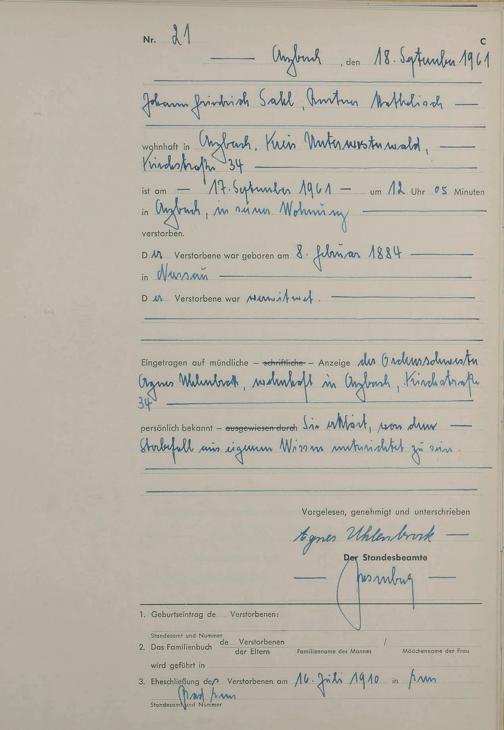 Nr. 21 C
Arzbach, den 18. September 1961
Johann Friedrich Sahl, Rentner, katholisch
wohnhaft in Arzbach, Kreis Unterwesterwald,
Kirchstraße 34
ist am 17. September 1961 um 12 Uhr 05 Minuten
in Arzbach, in seiner Wohnung
verstorben.
Der Verstorbene war geboren am 8. Februar 1884
in Nassau
Der Verstorbene war verwitwet.
Eingetragen auf mündliche – schriftliche – Anzeige der Ordensschwester
Agnes Uhlenbrock, wohnhaft in Arzbach, Kirchstraße
34
persönlich bekannt – ausgewiesen durch Sie erklärt, von dem
Sterbefall aus eigenem Wissen unterrichtet zu sein.
Vorgelesen, genehmigt und unterschrieben
Agnes Uhlenbrock
Der Standesbeamte
1. Geburtseintrag de Verstorbenen:
Standesamt und Nummer
2. Das Familienbuch de Verstorbenen /
der Eltern Familienname des Mannes Mädchenname der Frau
wird geführt in
3. Eheschließung des Verstorbenen am 16. Juli 1910 in Ems
Bad Ems
Standesamt und Nummer